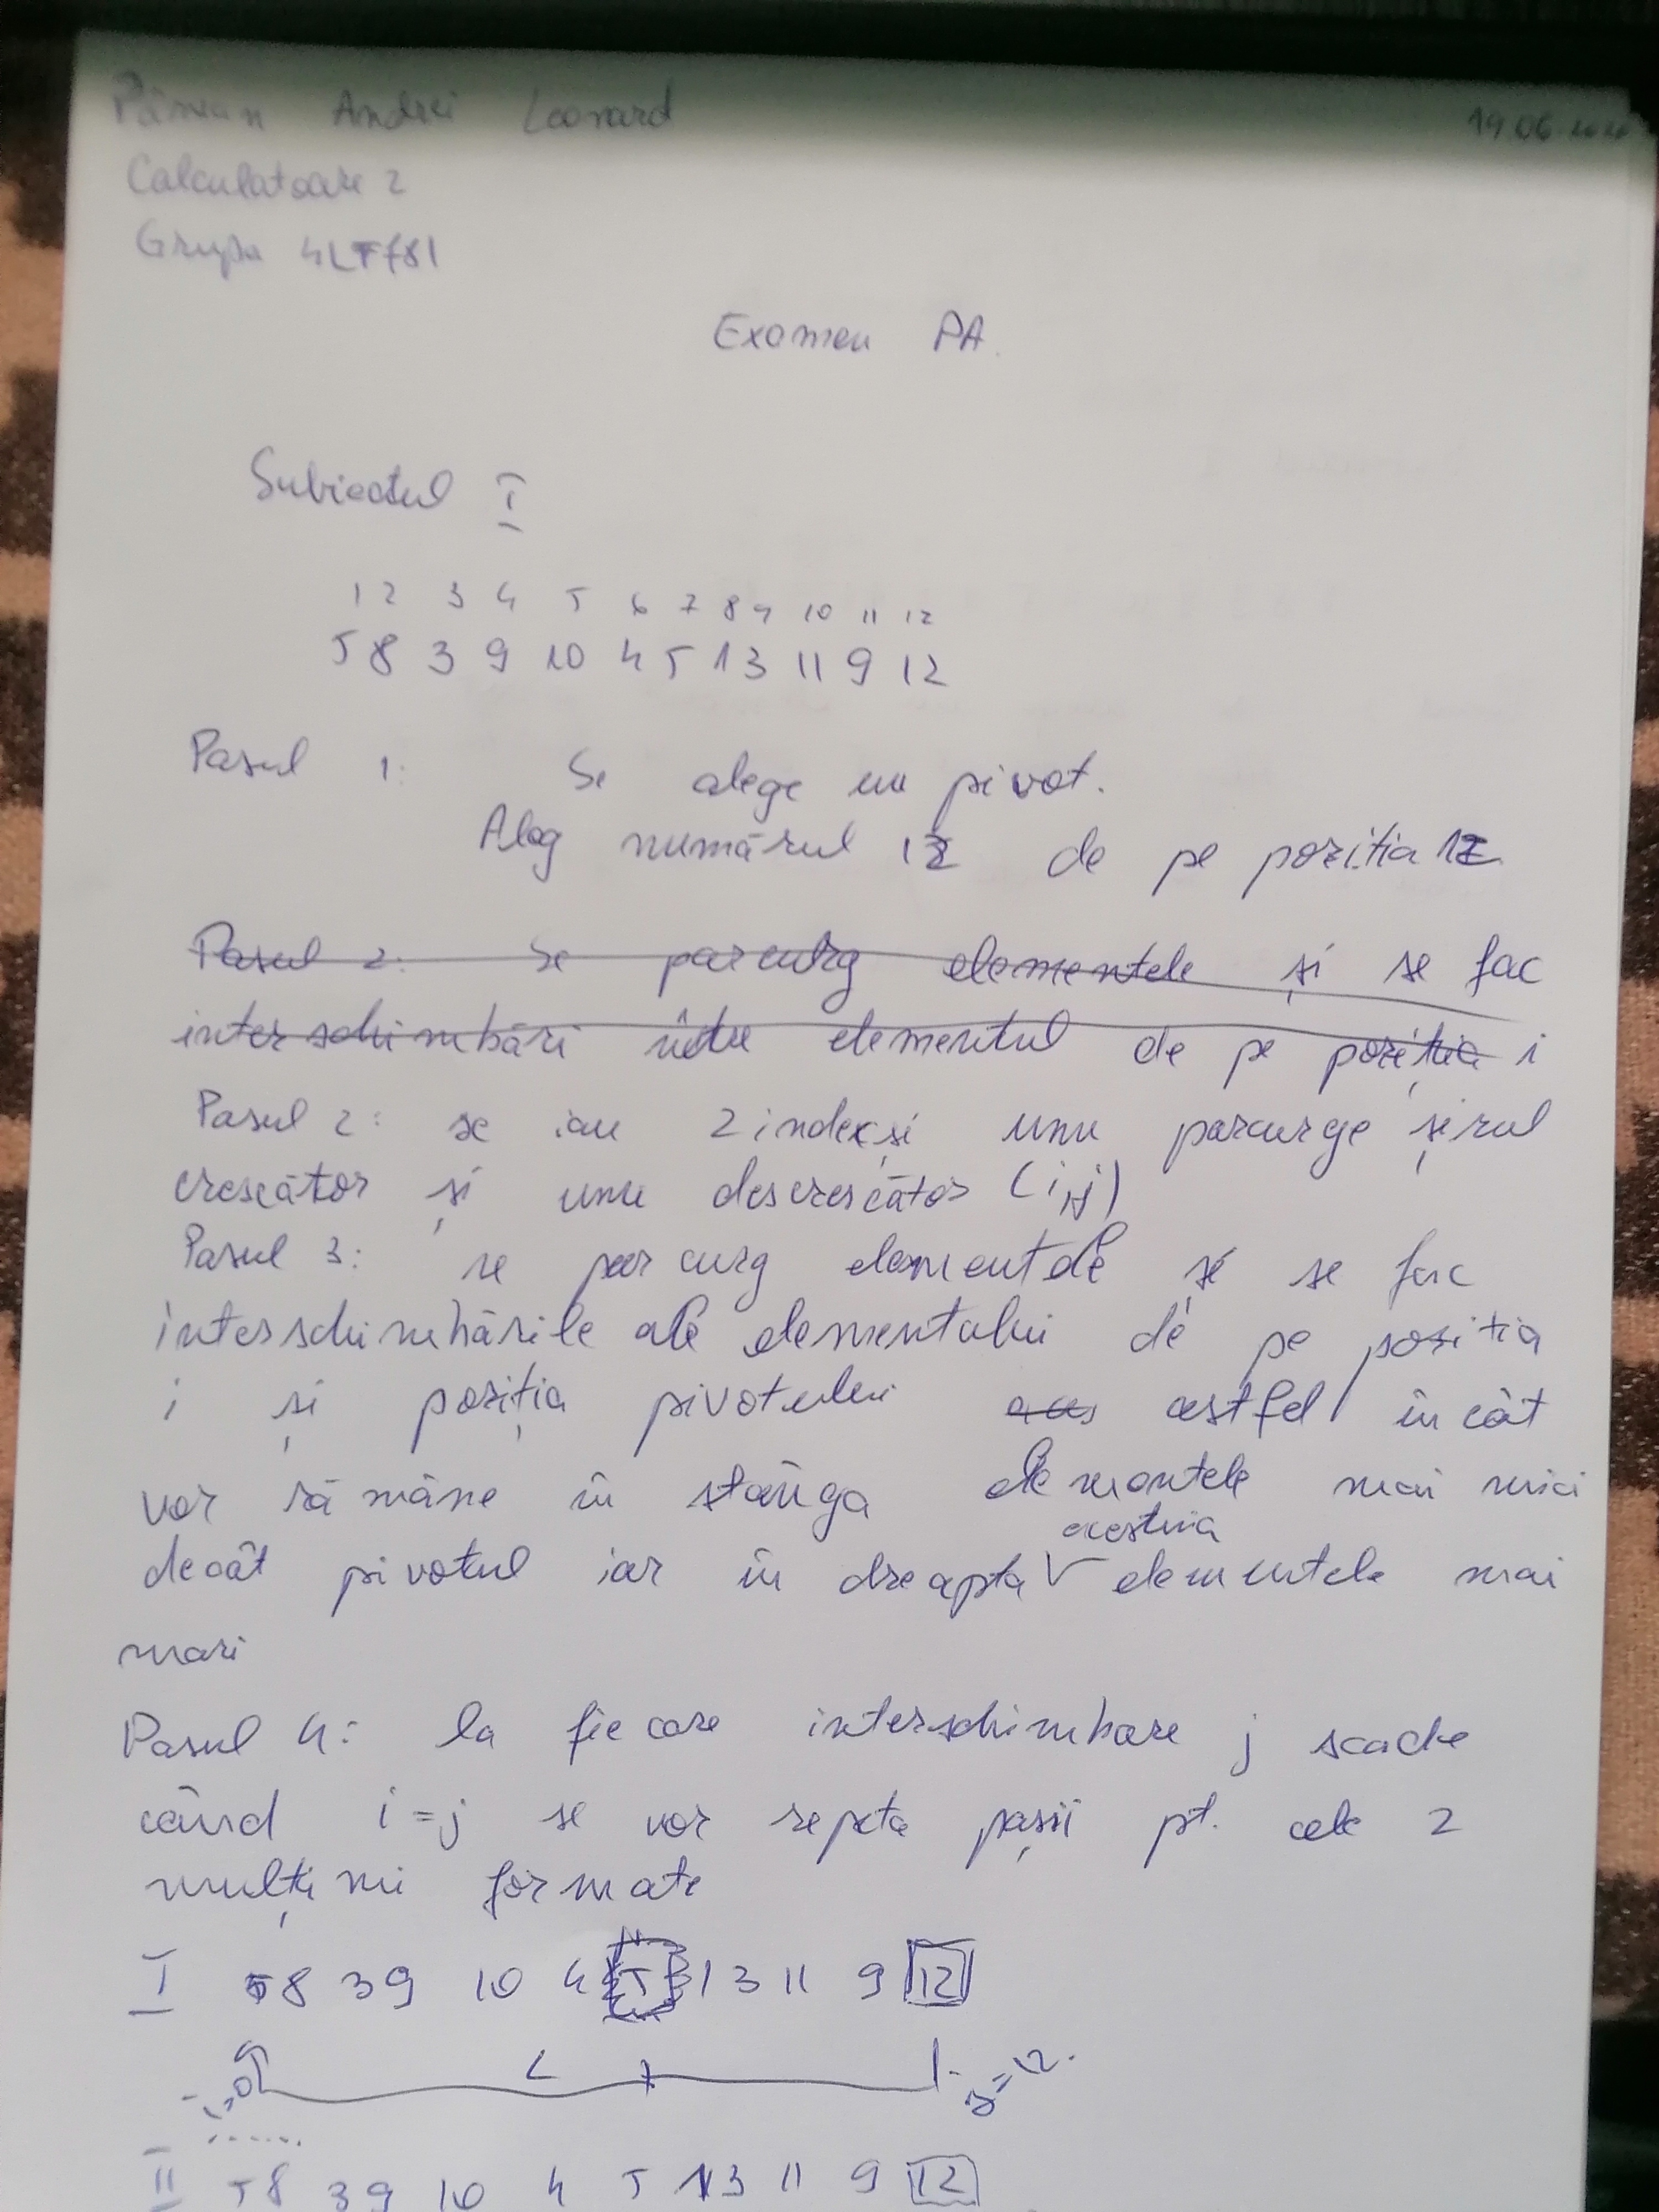 Andrei Leonard 19.06
Calculatoare 2
Grupa 4LF781
Examen PA.
Subiectul I
1 2 3 4 5 6 7 8 9 10 11 12
5 8 3 9 10 4 5 13 11 9 12
Pasul 1: Se alege un pivot.
Aleg numărul 12 de pe poziția 12
Pasul 2: Se parcurg elementele și se fac
interschimbări între elementul de pe poziția i
Pasul 2: se iau 2 indexși unu parcurge șirul
crescător și unu descrescător (i,j)
Pasul 3: se parcurg elementele și se fac
interschimbările ale elementului de pe pozitia
i și poziția pivotului astfel încât
vor rămâne în stânga elementele mai mici
acestuia
decât pivotul iar în dreapta V elementele mai
mari
Pasul 4: la fiecare interschimbare j scade
când i=j se vor repeta pașii pt. cele 2
mulțimi formate
I 5 8 3 9 10 4 5 13 11 9 12
i=0 L j=12.
II 5 8 3 9 10 4 5 13 11 9 12